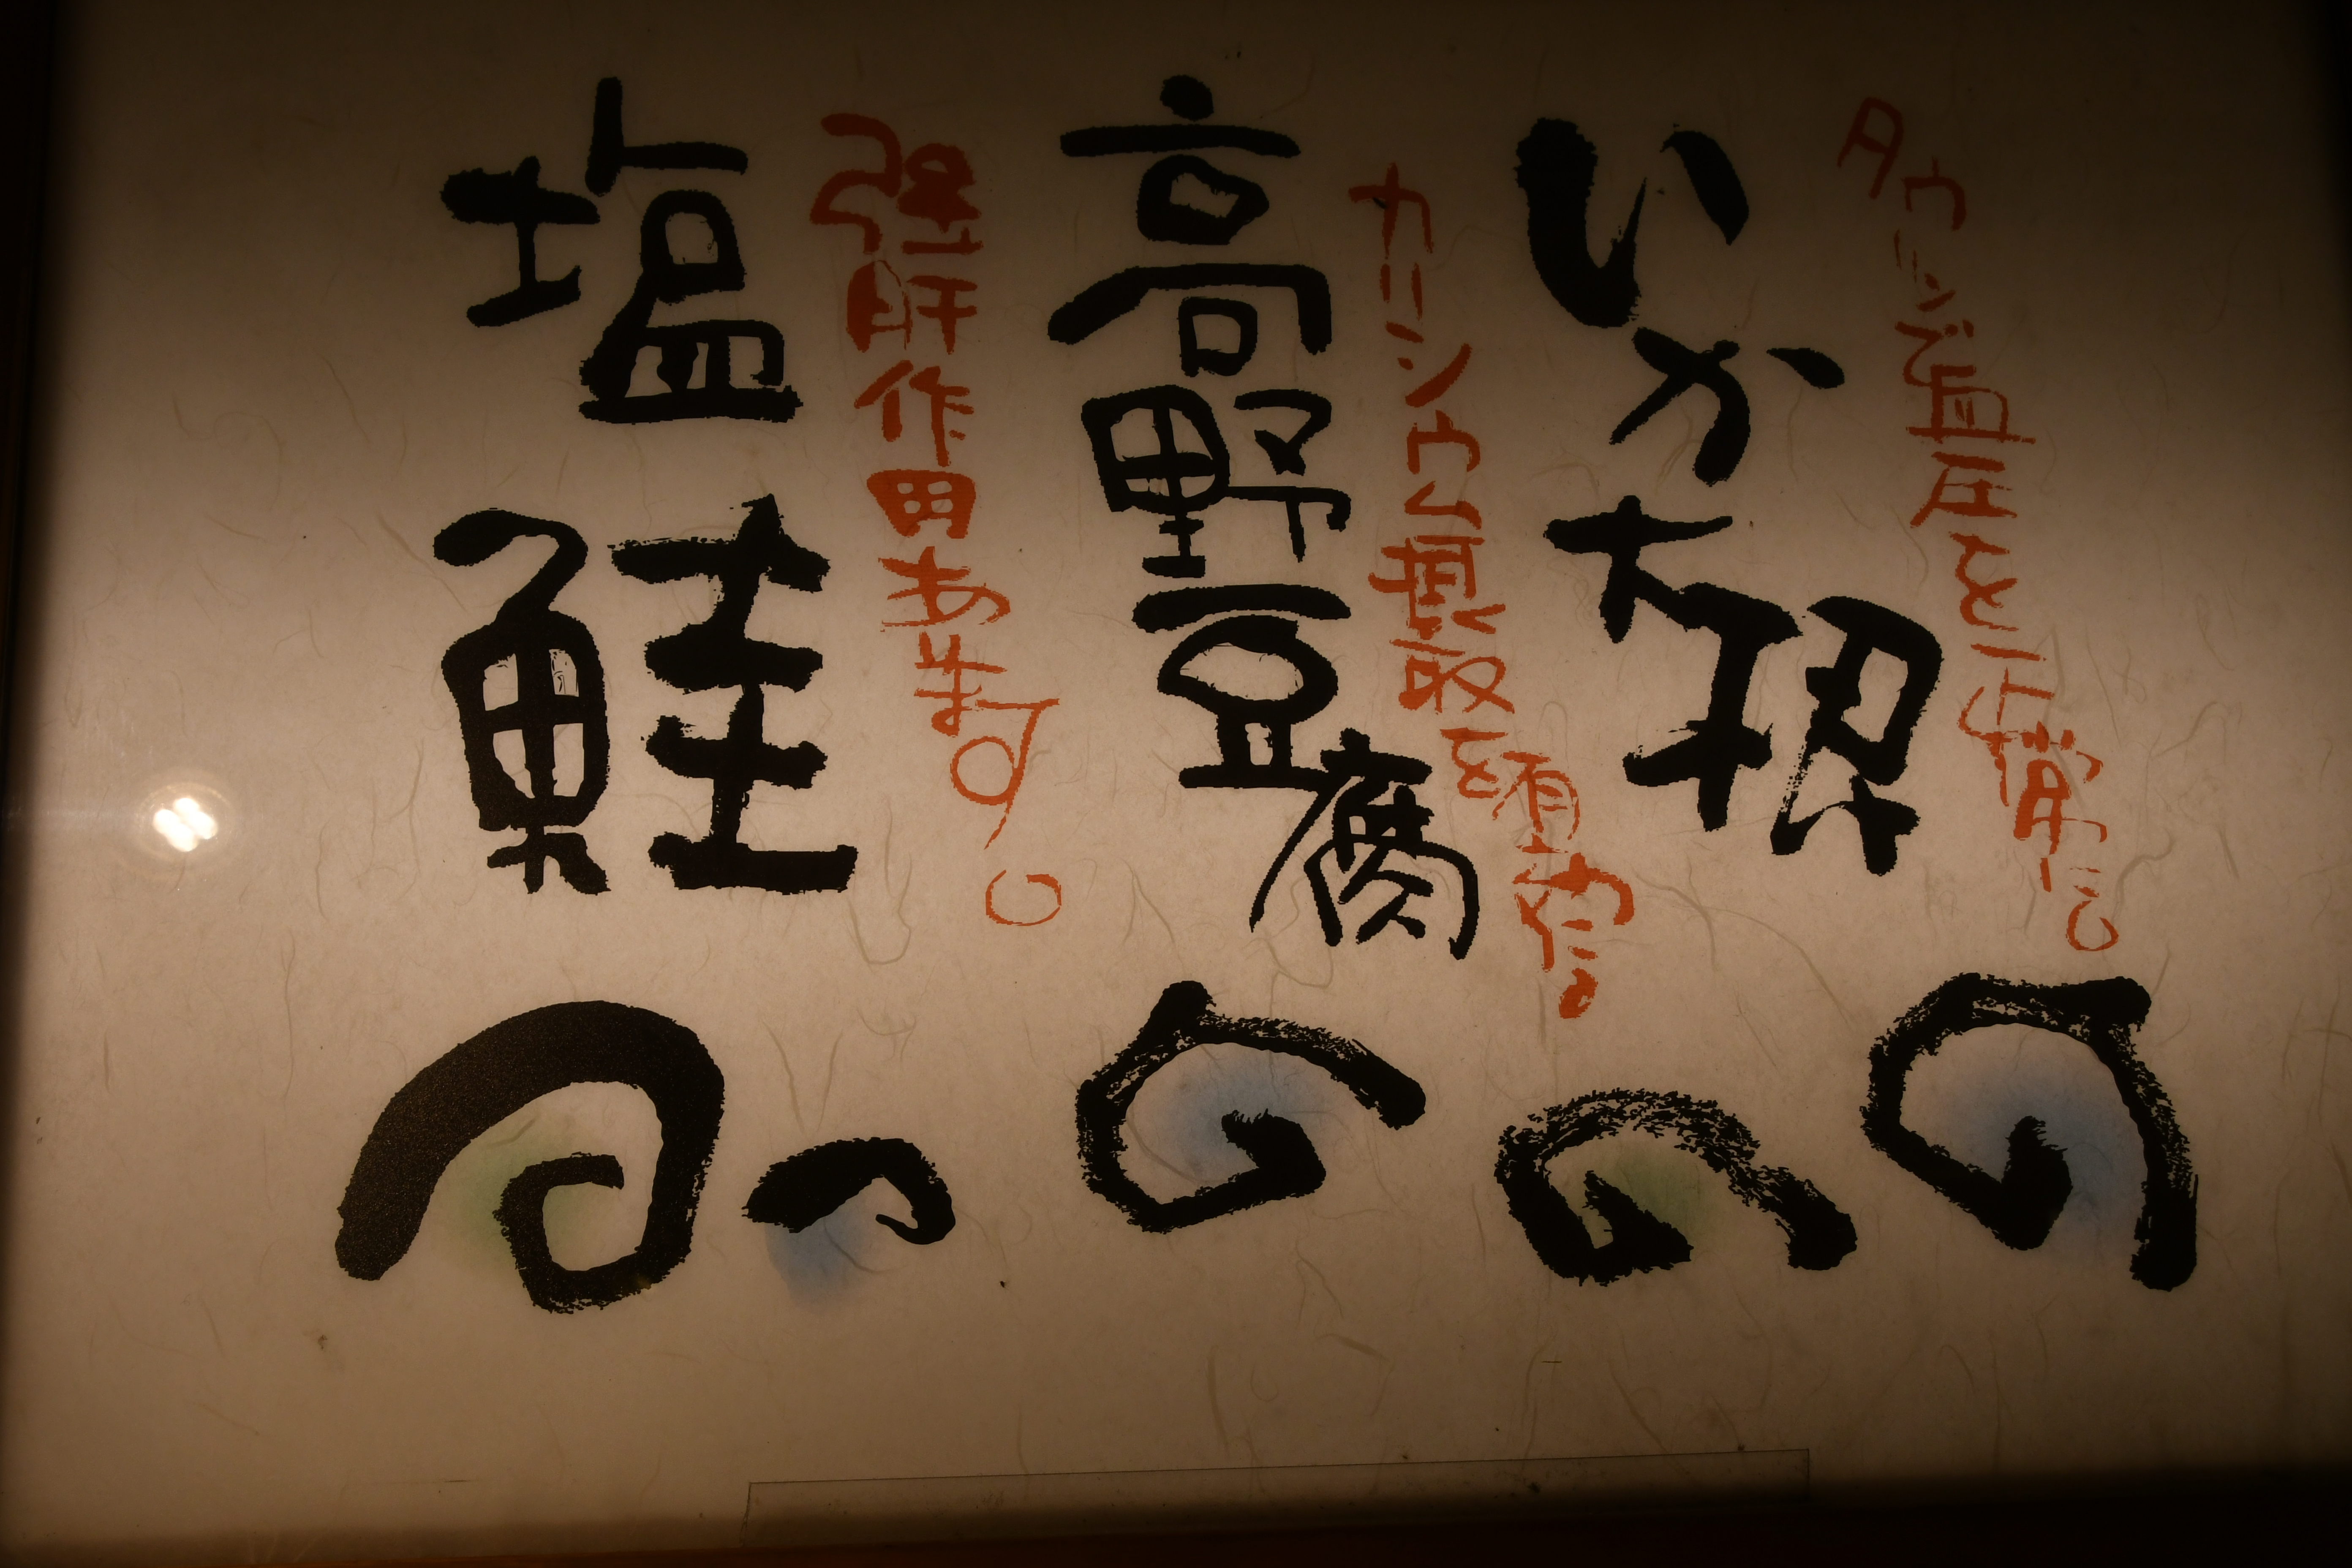 タウリン血圧を正常に。
いか大根
カルシウム摂取
高野豆腐
強肝作用あります。
塩鮭